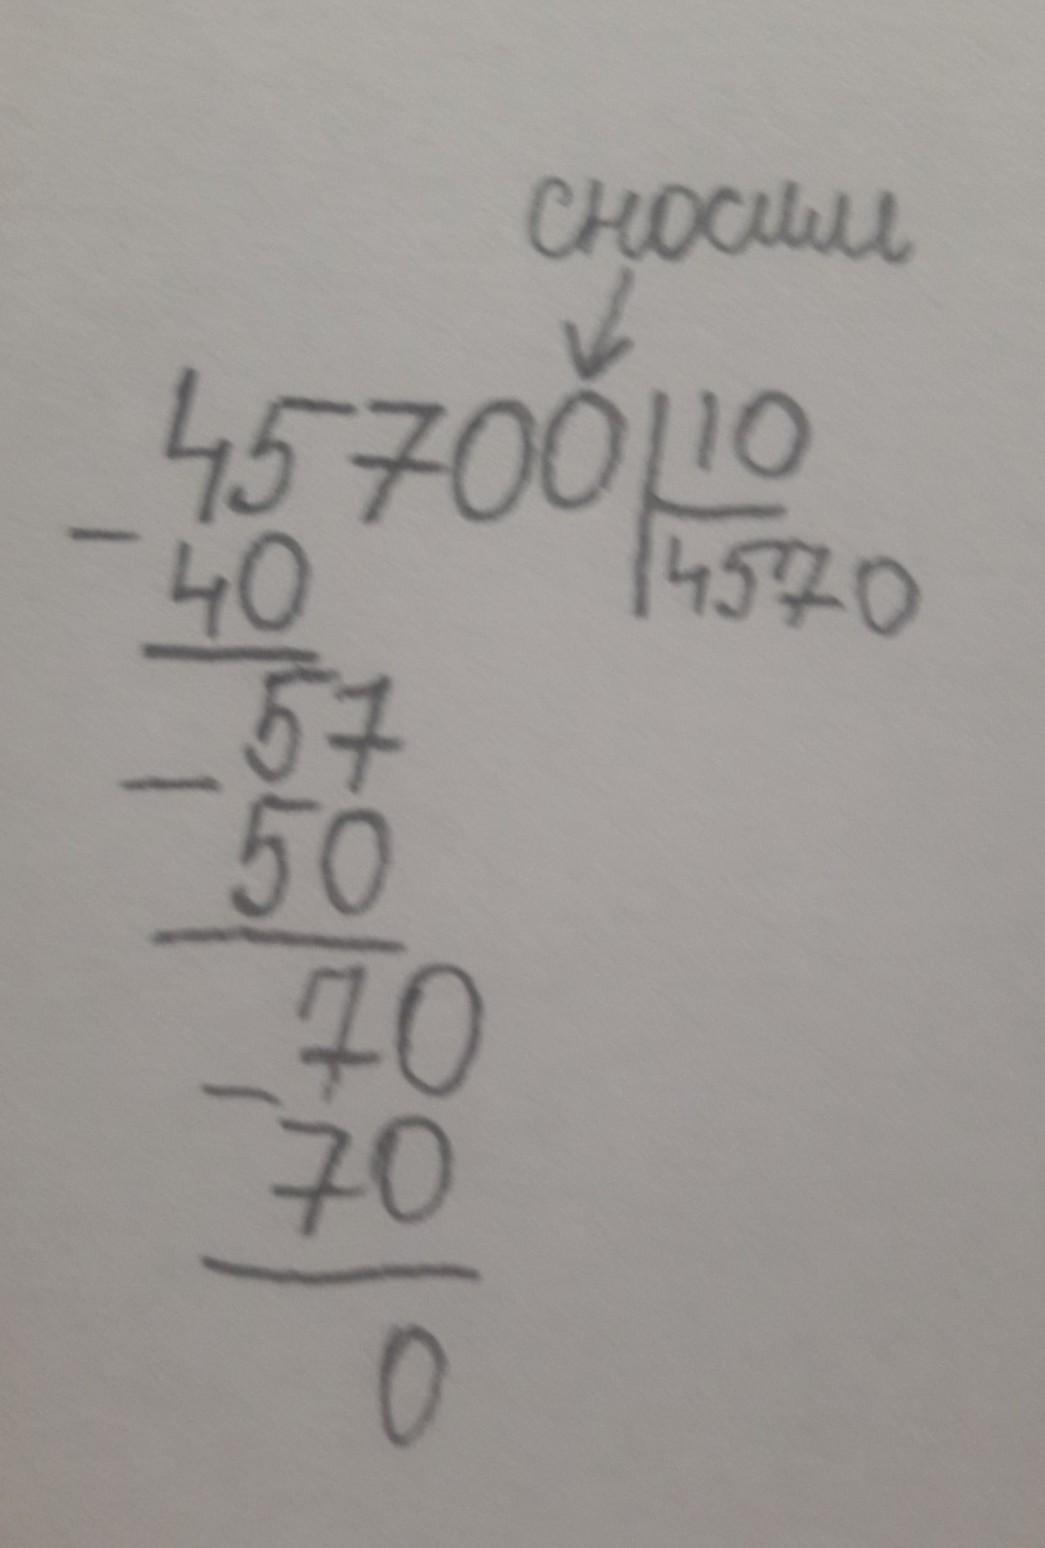 сносим
45700 10
- 40 4570
57
- 50
70
- 70
0